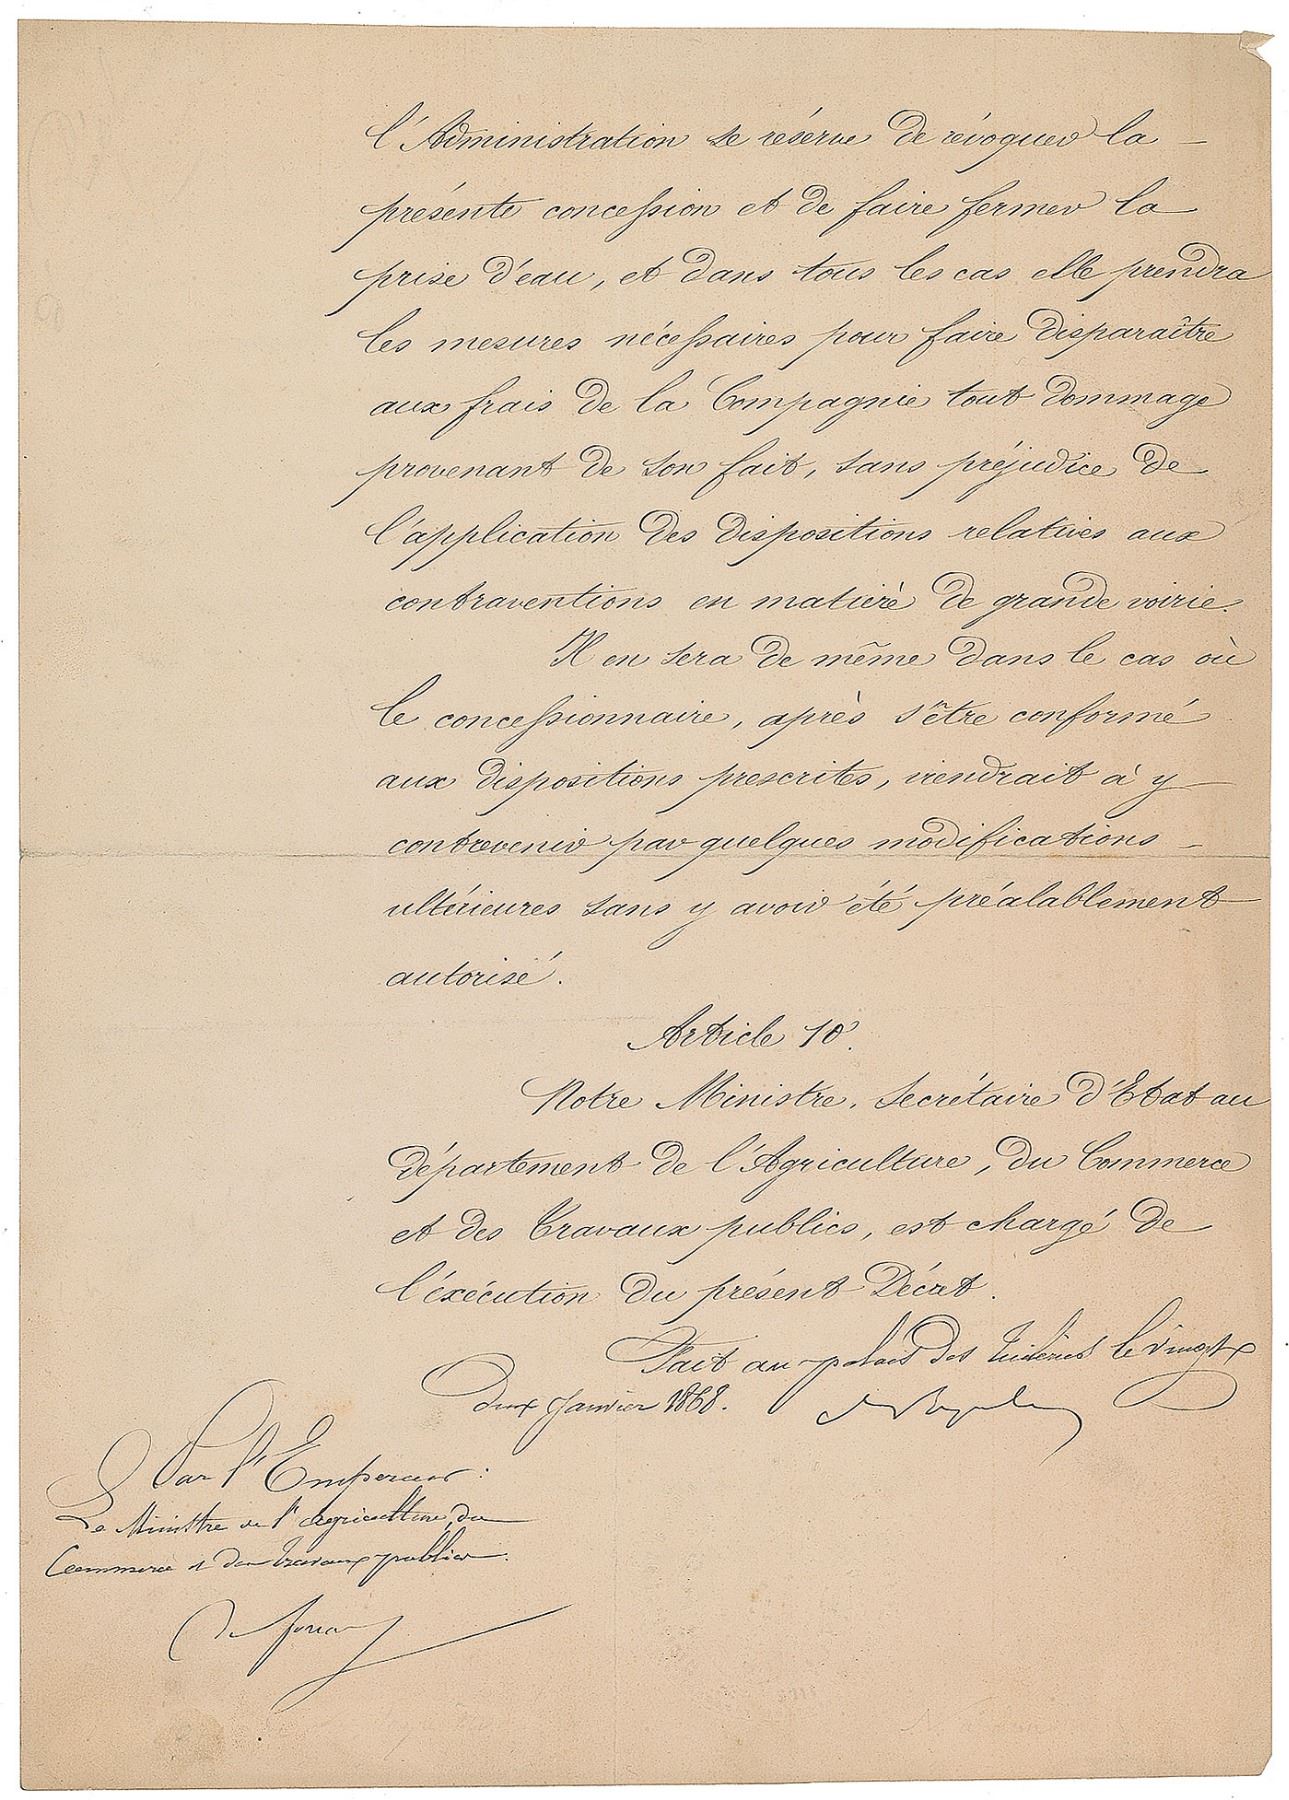 l'Administration se réserve de révoquer la
présente concession et de faire fermer la
prise d'eau, et dans tous les cas elle prendra
les mesures nécessaires pour faire disparaître
aux frais de la Compagnie tout dommage
provenant de son fait, sans préjudice de
l'application des dispositions relatives aux
contraventions en matière de grande voirie.
Il en sera de même dans le cas où
le concessionnaire, après s'être conformé
aux dispositions prescrites, viendrait à y
contrevenir par quelques modifications
ultérieures sans y avoir été préalablement
autorisé.
Article 10.
Notre Ministre, Secrétaire d'Etat au
département de l'Agriculture, du Commerce
et des Travaux publics, est chargé de
l'éxécution du présent Décret.
Fait au palais des Tuileries le vingt
deux Janvier 1868.
Par l'Empereur :
Le Ministre de l'agriculture, du
Commerce et des travaux publics.